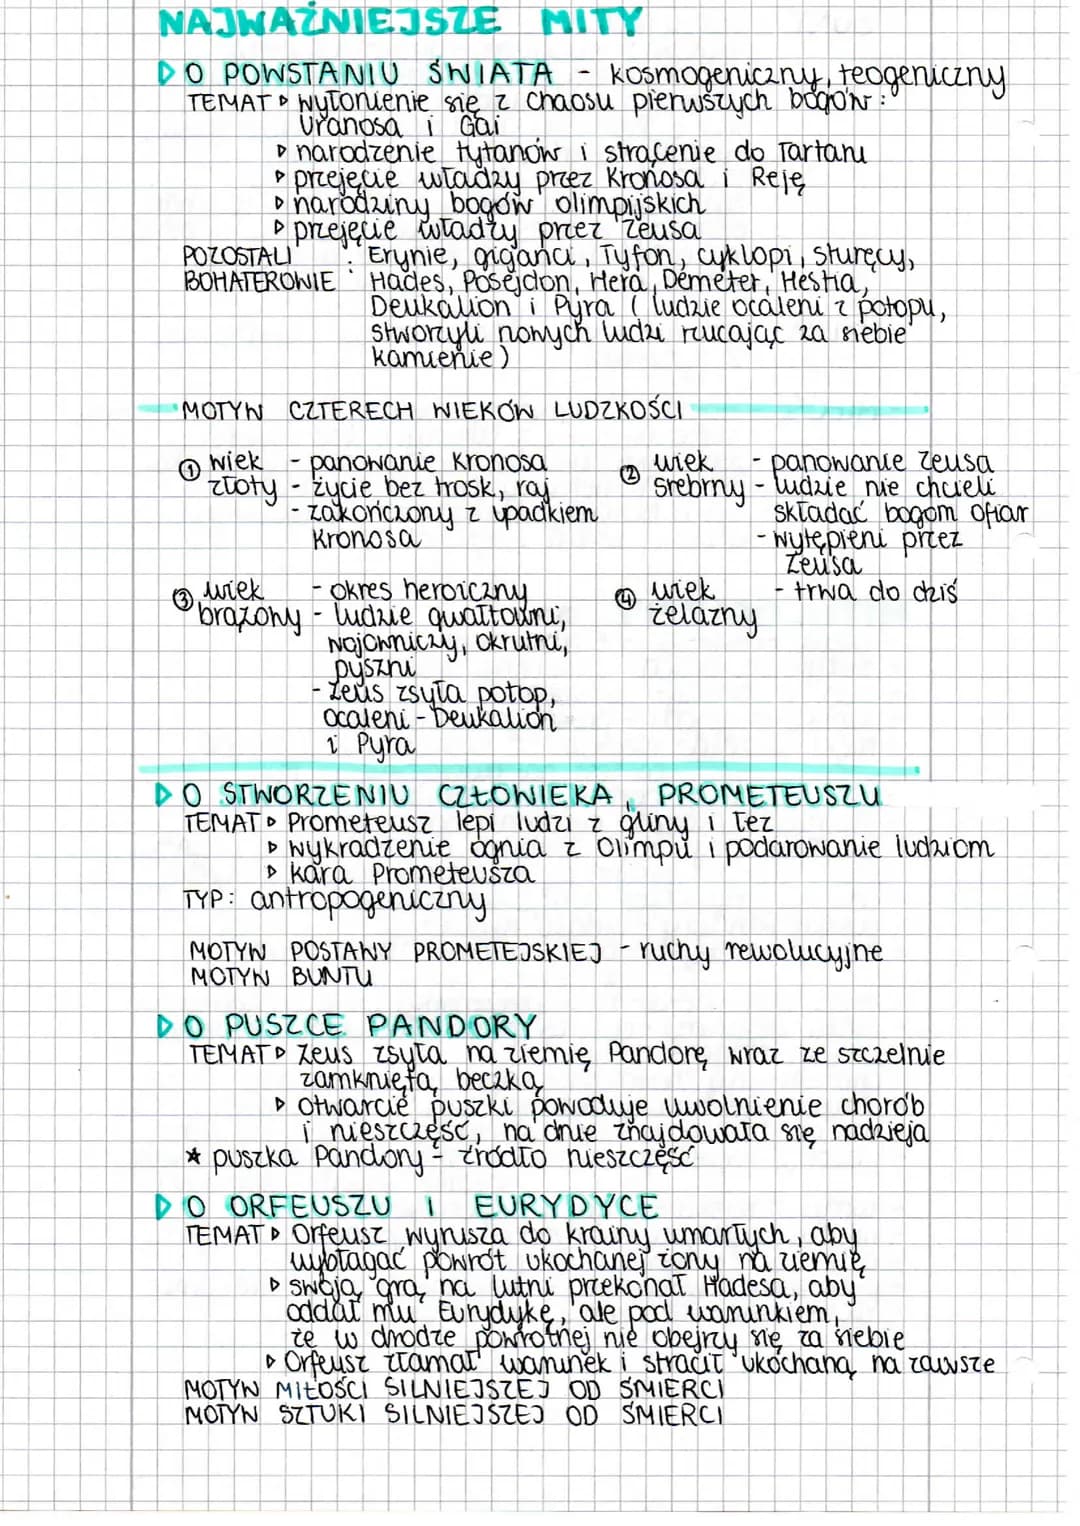 NAJWAŻNIEJSZE MITY
▷ O POWSTANIU ŚWIATA - kosmogeniczny, teogeniczny
TEMAT ▷ wyłonienie się z chaosu pierwszych bogów:
Uranosa i Gai
▷ narodzenie tytanów i strącenie do Tartaru
▷ przejęcie władzy przez Kronosa i Reję
▷ narodziny bogów olimpijskich
▷ przejęcie władzy przez Zeusa
POZOSTALI : Erynie, giganci, Tyfon, cyklopi, sturęcy,
BOHATEROWIE Hades, Posejdon, Hera, Demeter, Hestia,
Deukalion i Pyra (ludzie ocaleni z potopu,
stworzyli nowych ludzi rzucając za siebie
kamienie)
MOTYW CZTERECH WIEKÓW LUDZKOŚCI
① wiek - panowanie Kronosa
złoty - życie bez trosk, raj
- zakończony z upadkiem
Kronosa
② wiek - panowanie Zeusa
srebrny - ludzie nie chcieli
składać bogom ofiar
- wytępieni przez
Zeusa
③ wiek - okres heroiczny
brązowy - ludzie gwałtowni,
wojowniczy, okrutni,
pyszni
- Zeus zsyła potop,
ocaleni - Deukalion
i Pyra
④ wiek - trwa do dziś
żelazny
▷ O STWORZENIU CZŁOWIEKA, PROMETEUSZU
TEMAT ▷ Prometeusz lepi ludzi z gliny i łez
▷ wykradzenie ognia z Olimpu i podarowanie ludziom
▷ kara Prometeusza
TYP: antropogeniczny
MOTYW POSTAWY PROMETEJSKIEJ - ruchy rewolucyjne
MOTYW BUNTU
▷ O PUSZCE PANDORY
TEMAT ▷ Zeus zsyła na ziemię Pandorę wraz ze szczelnie
zamkniętą beczką
▷ otwarcie puszki powoduje uwolnienie chorób
i nieszczęść, na dnie znajdowała się nadzieja
* puszka Pandory - źródło nieszczęść
▷ O ORFEUSZU I EURYDYCE
TEMAT ▷ Orfeusz wyrusza do krainy umarłych, aby
wybłagać powrót ukochanej żony na ziemię
▷ swoją grą na lutni przekonał Hadesa, aby
oddał mu Eurydykę, ale pod warunkiem,
że w drodze powrotnej nie obejrzy się za siebie
▷ Orfeusz złamał warunek i stracił ukochaną na zawsze
MOTYW MIŁOŚCI SILNIEJSZEJ OD ŚMIERCI
MOTYW SZTUKI SILNIEJSZEJ OD ŚMIERCI